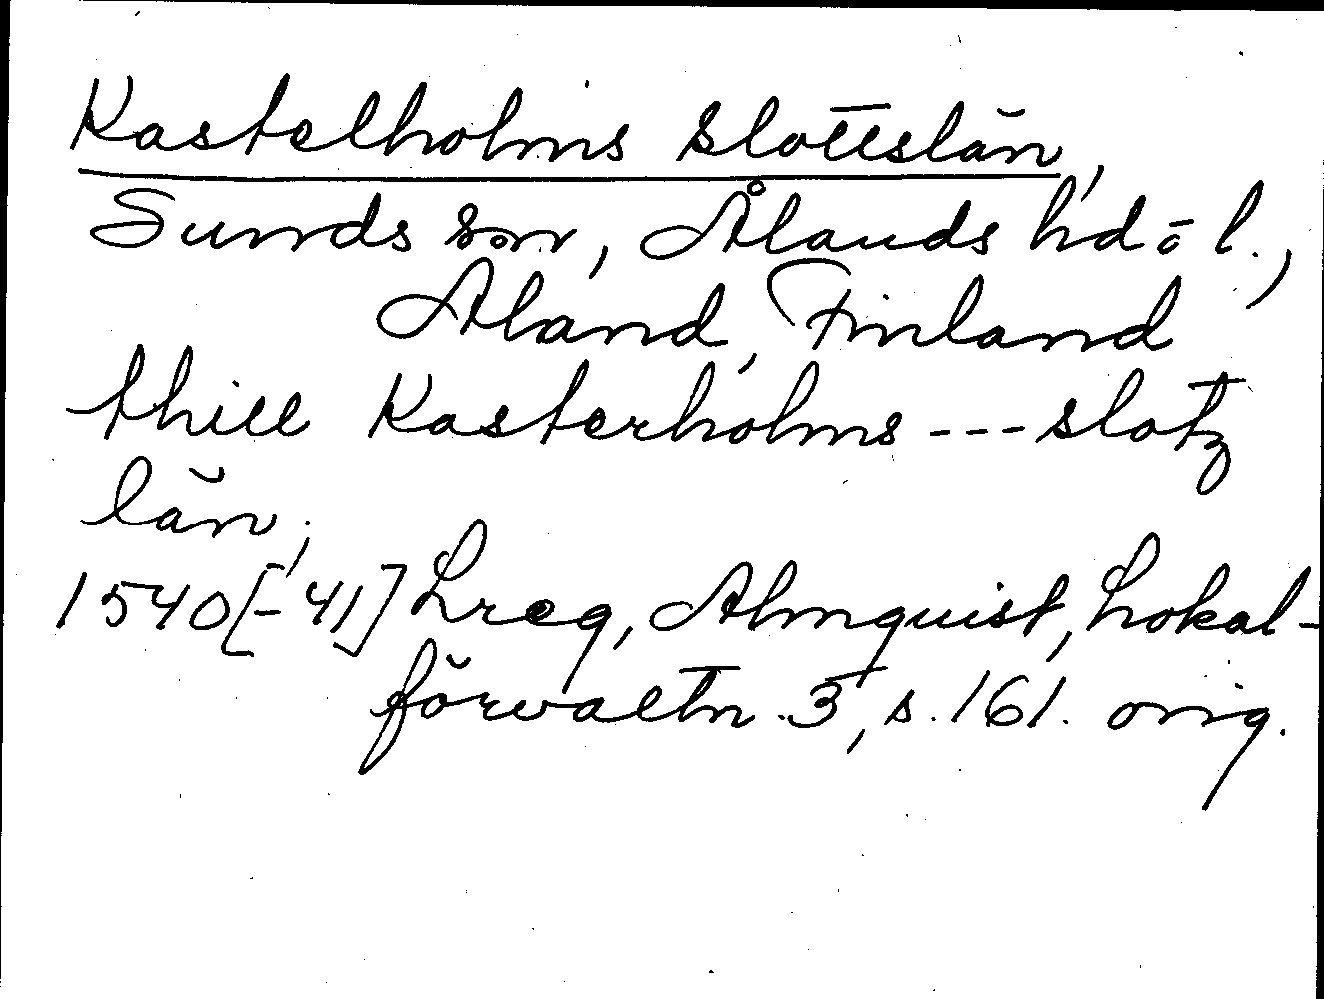 Kastelholms slottslän,
Sunds sn, Ålands hd o l.,
Åland, Finland
thill Kasterholms --- slotz
län,
1540[-41] Lreg, Almquist, Lokal-
förvaltn. 3, s. 161. orig.